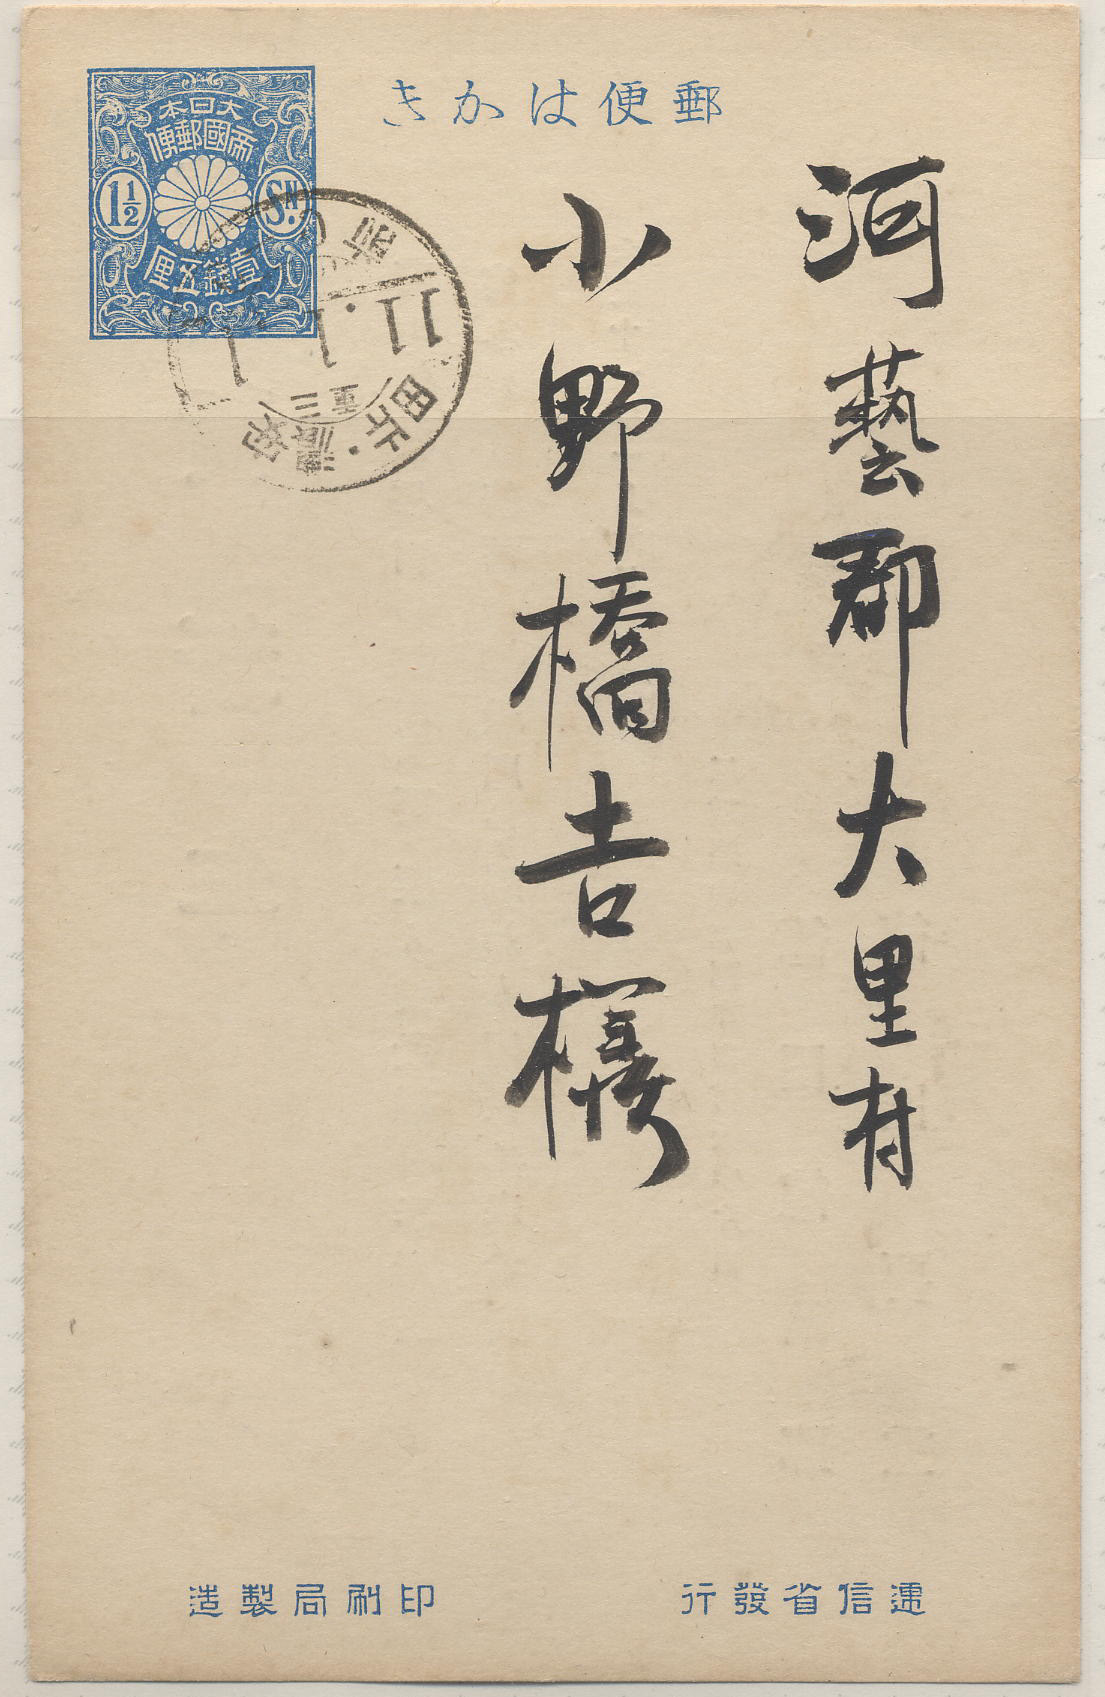 郵便はかき
大日本
帝國郵便
1½ SN.
壹錢五厘
河藝郡大里村
小野橋吉様
三重
安濃・片田
11.1.1
遞信省發行
印刷局製造